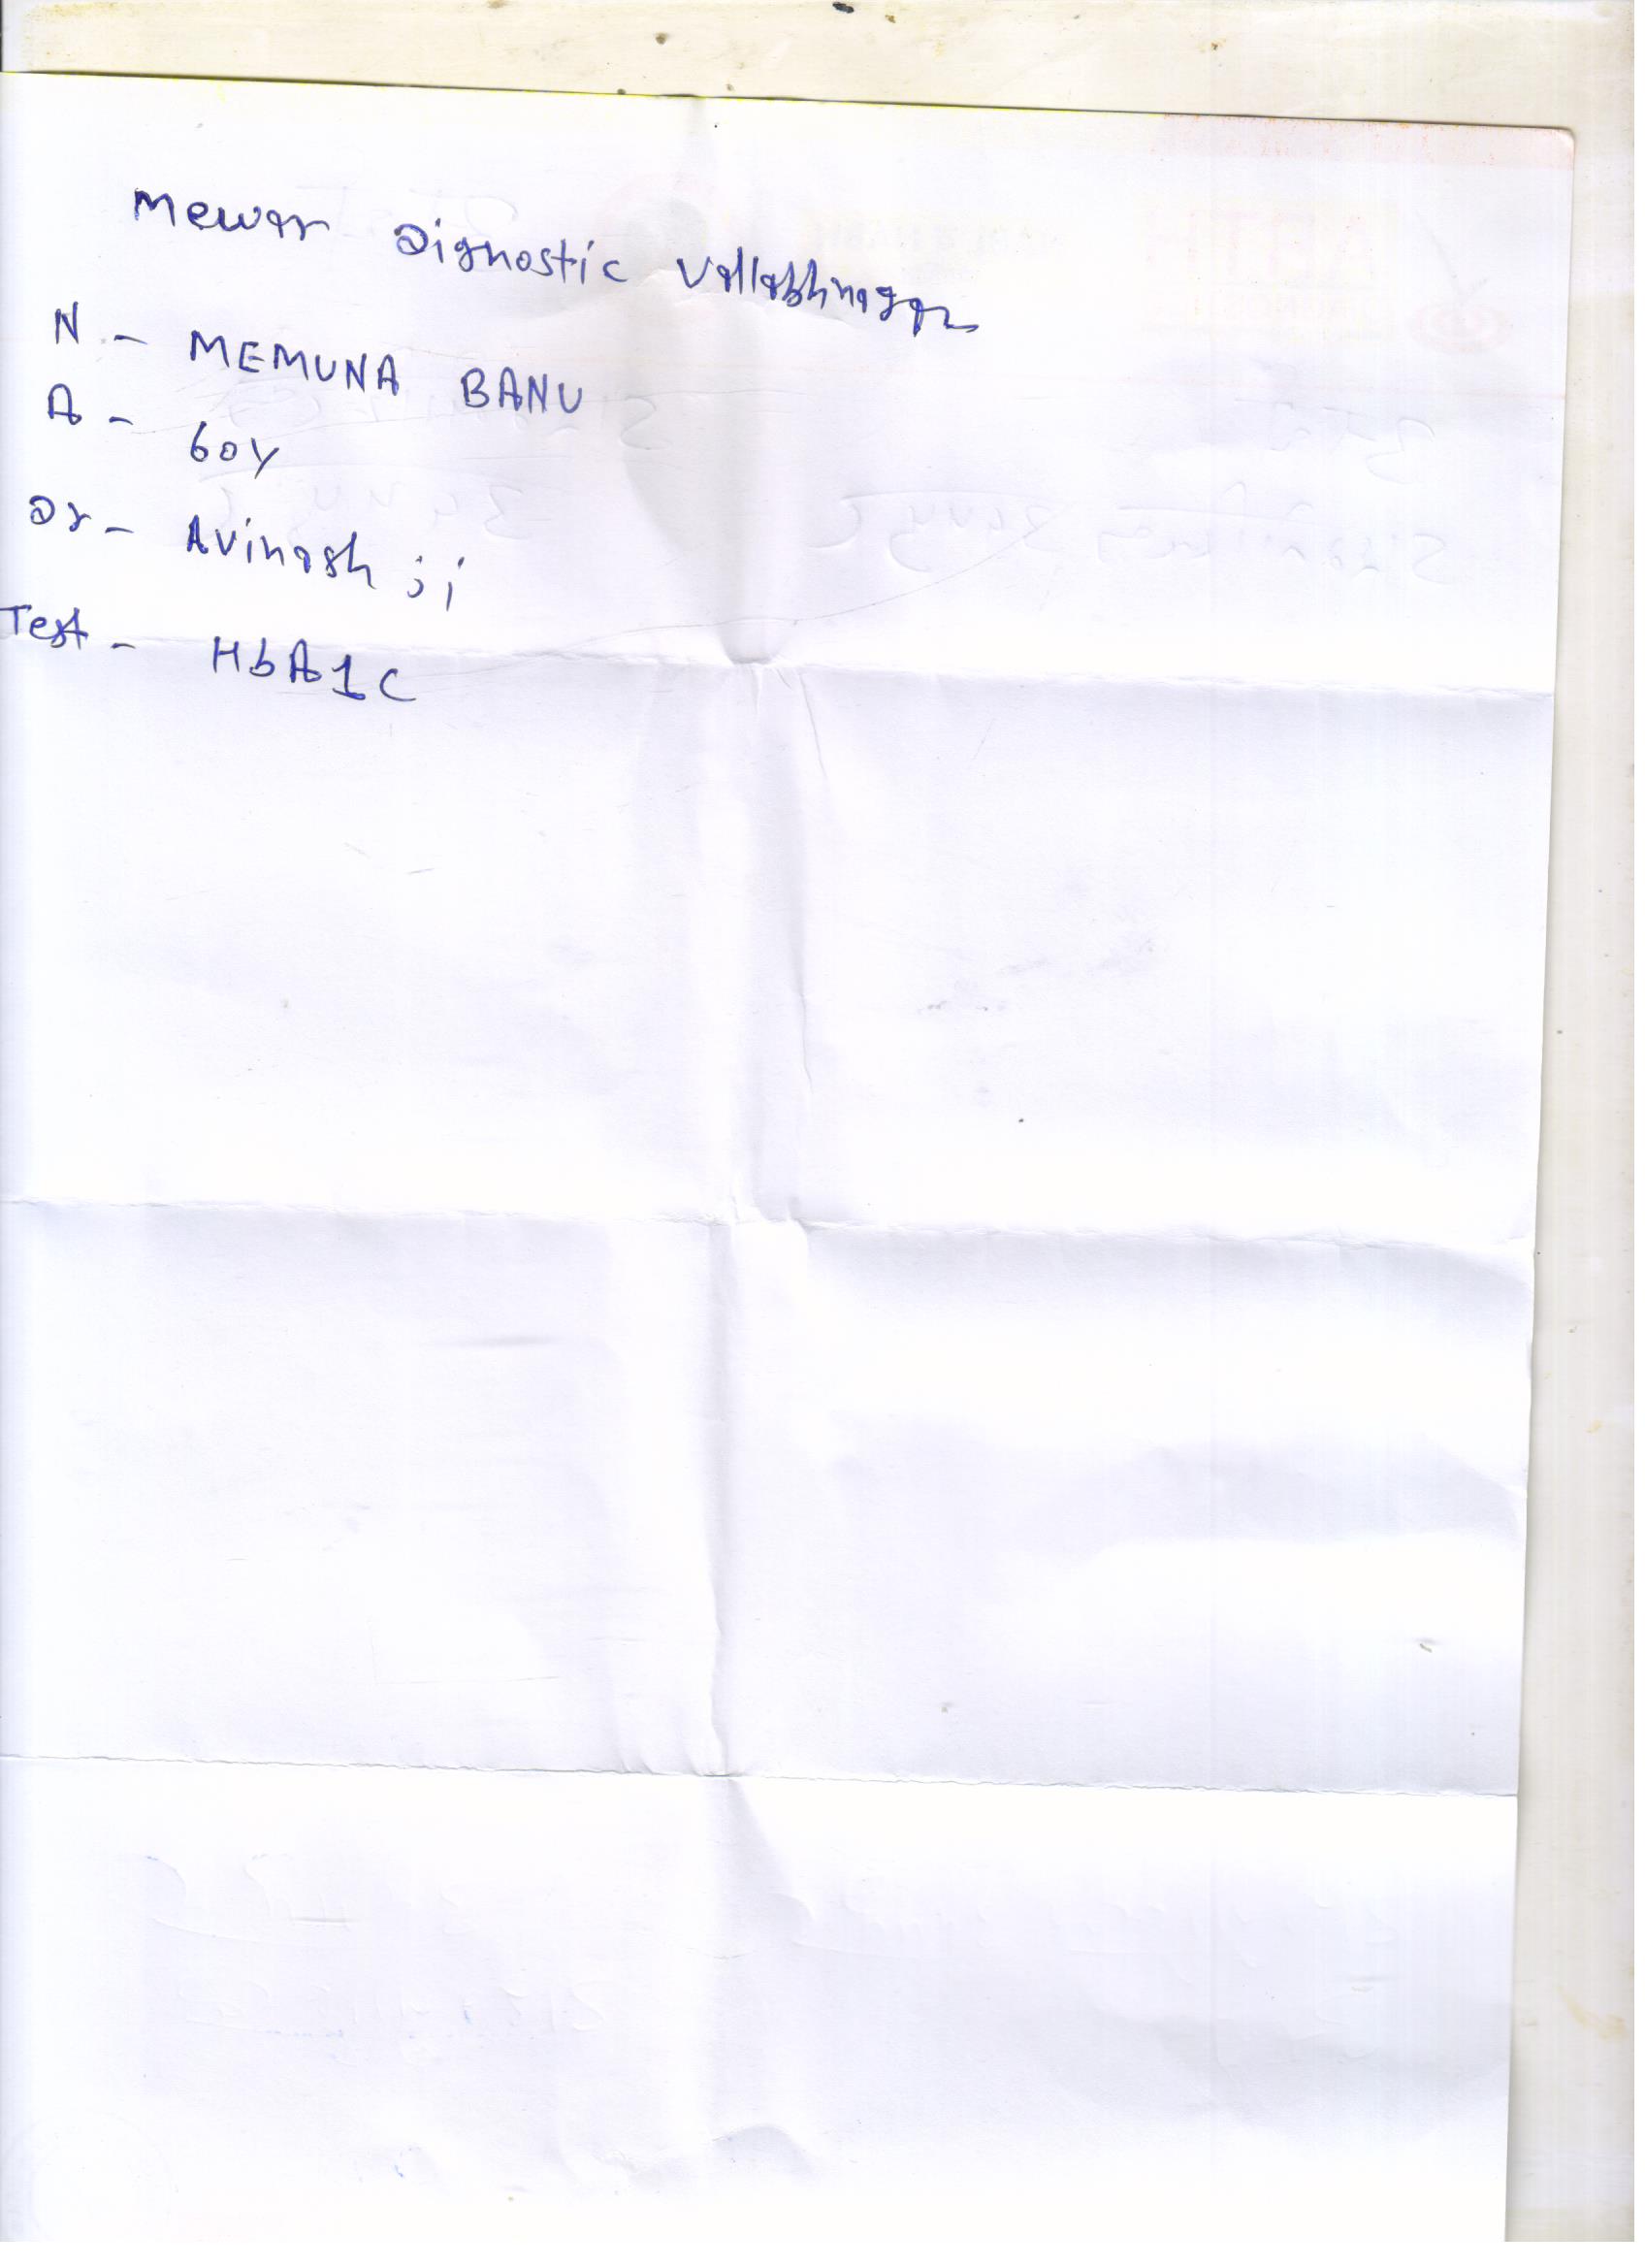 Mewar Dignostic Vallabhnagar
N - MEMUNA BANU
A - 60Y
Dr - Avinash ji
Test - HbA1C